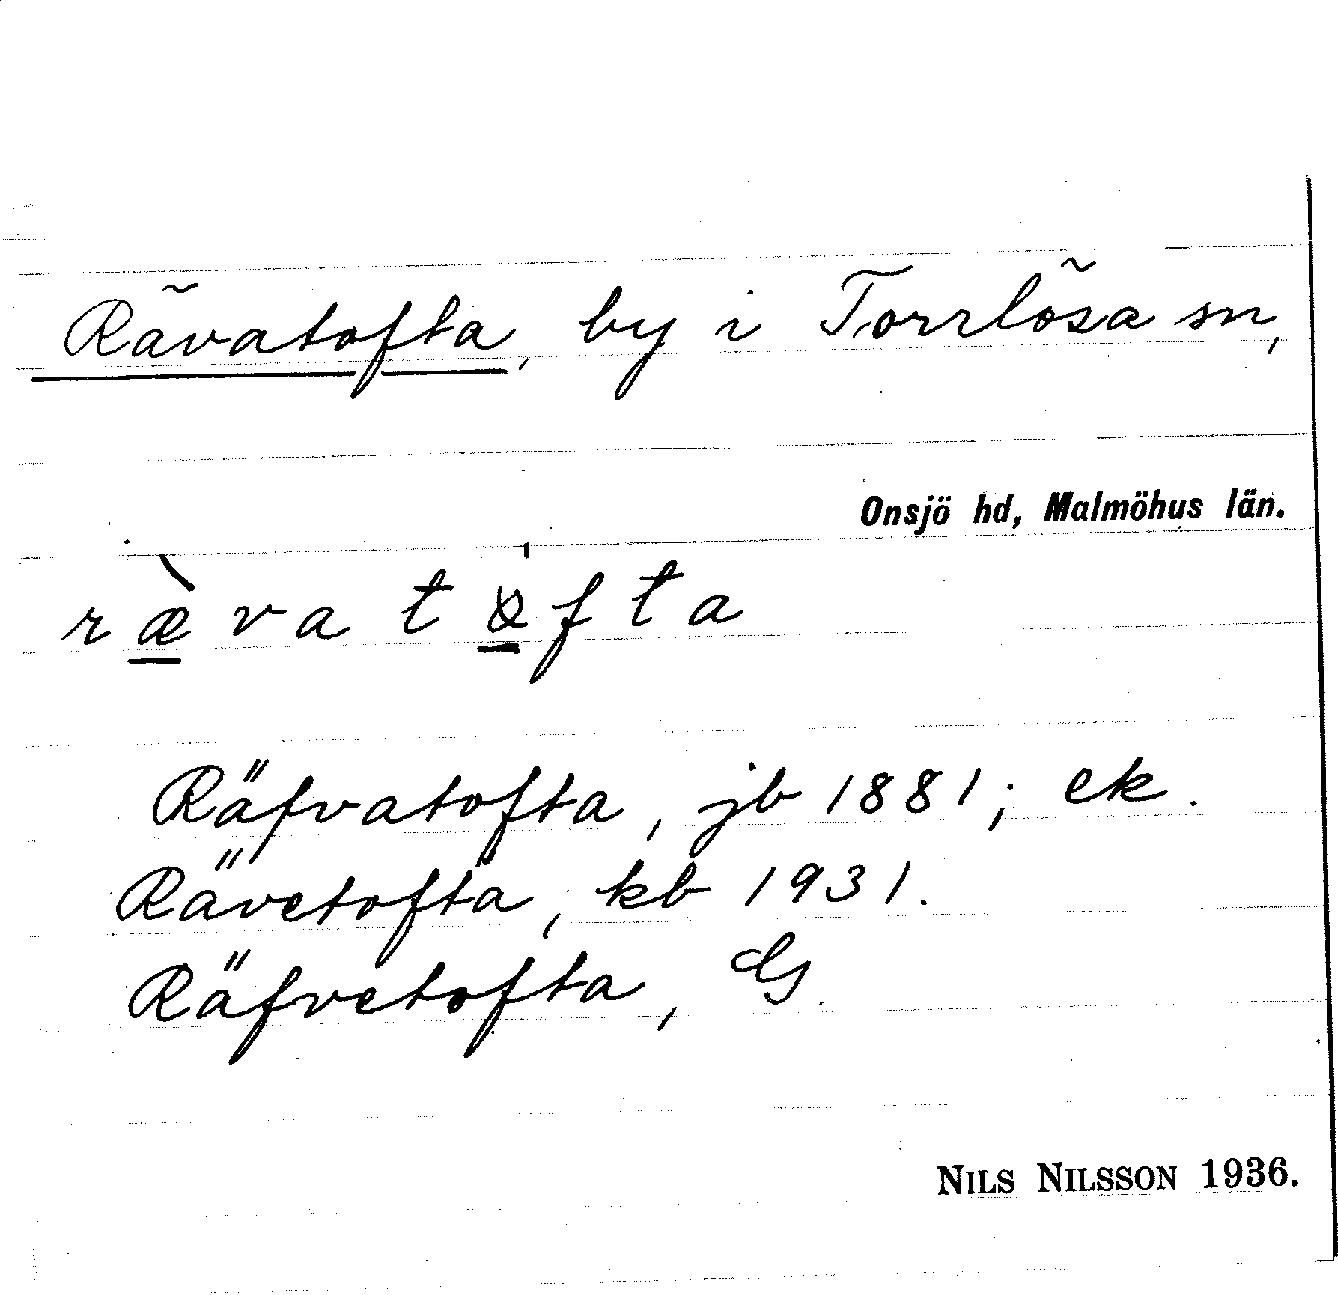 Rävatofta, by i Torrlösa sn,
Onsjö hd, Malmöhus län.
ræ̀vatɷfta
Räfvatofta, jb 1881; ek.
Rävetofta, kb 1931.
Räfvetofta, G.
NILS NILSSON 1936.